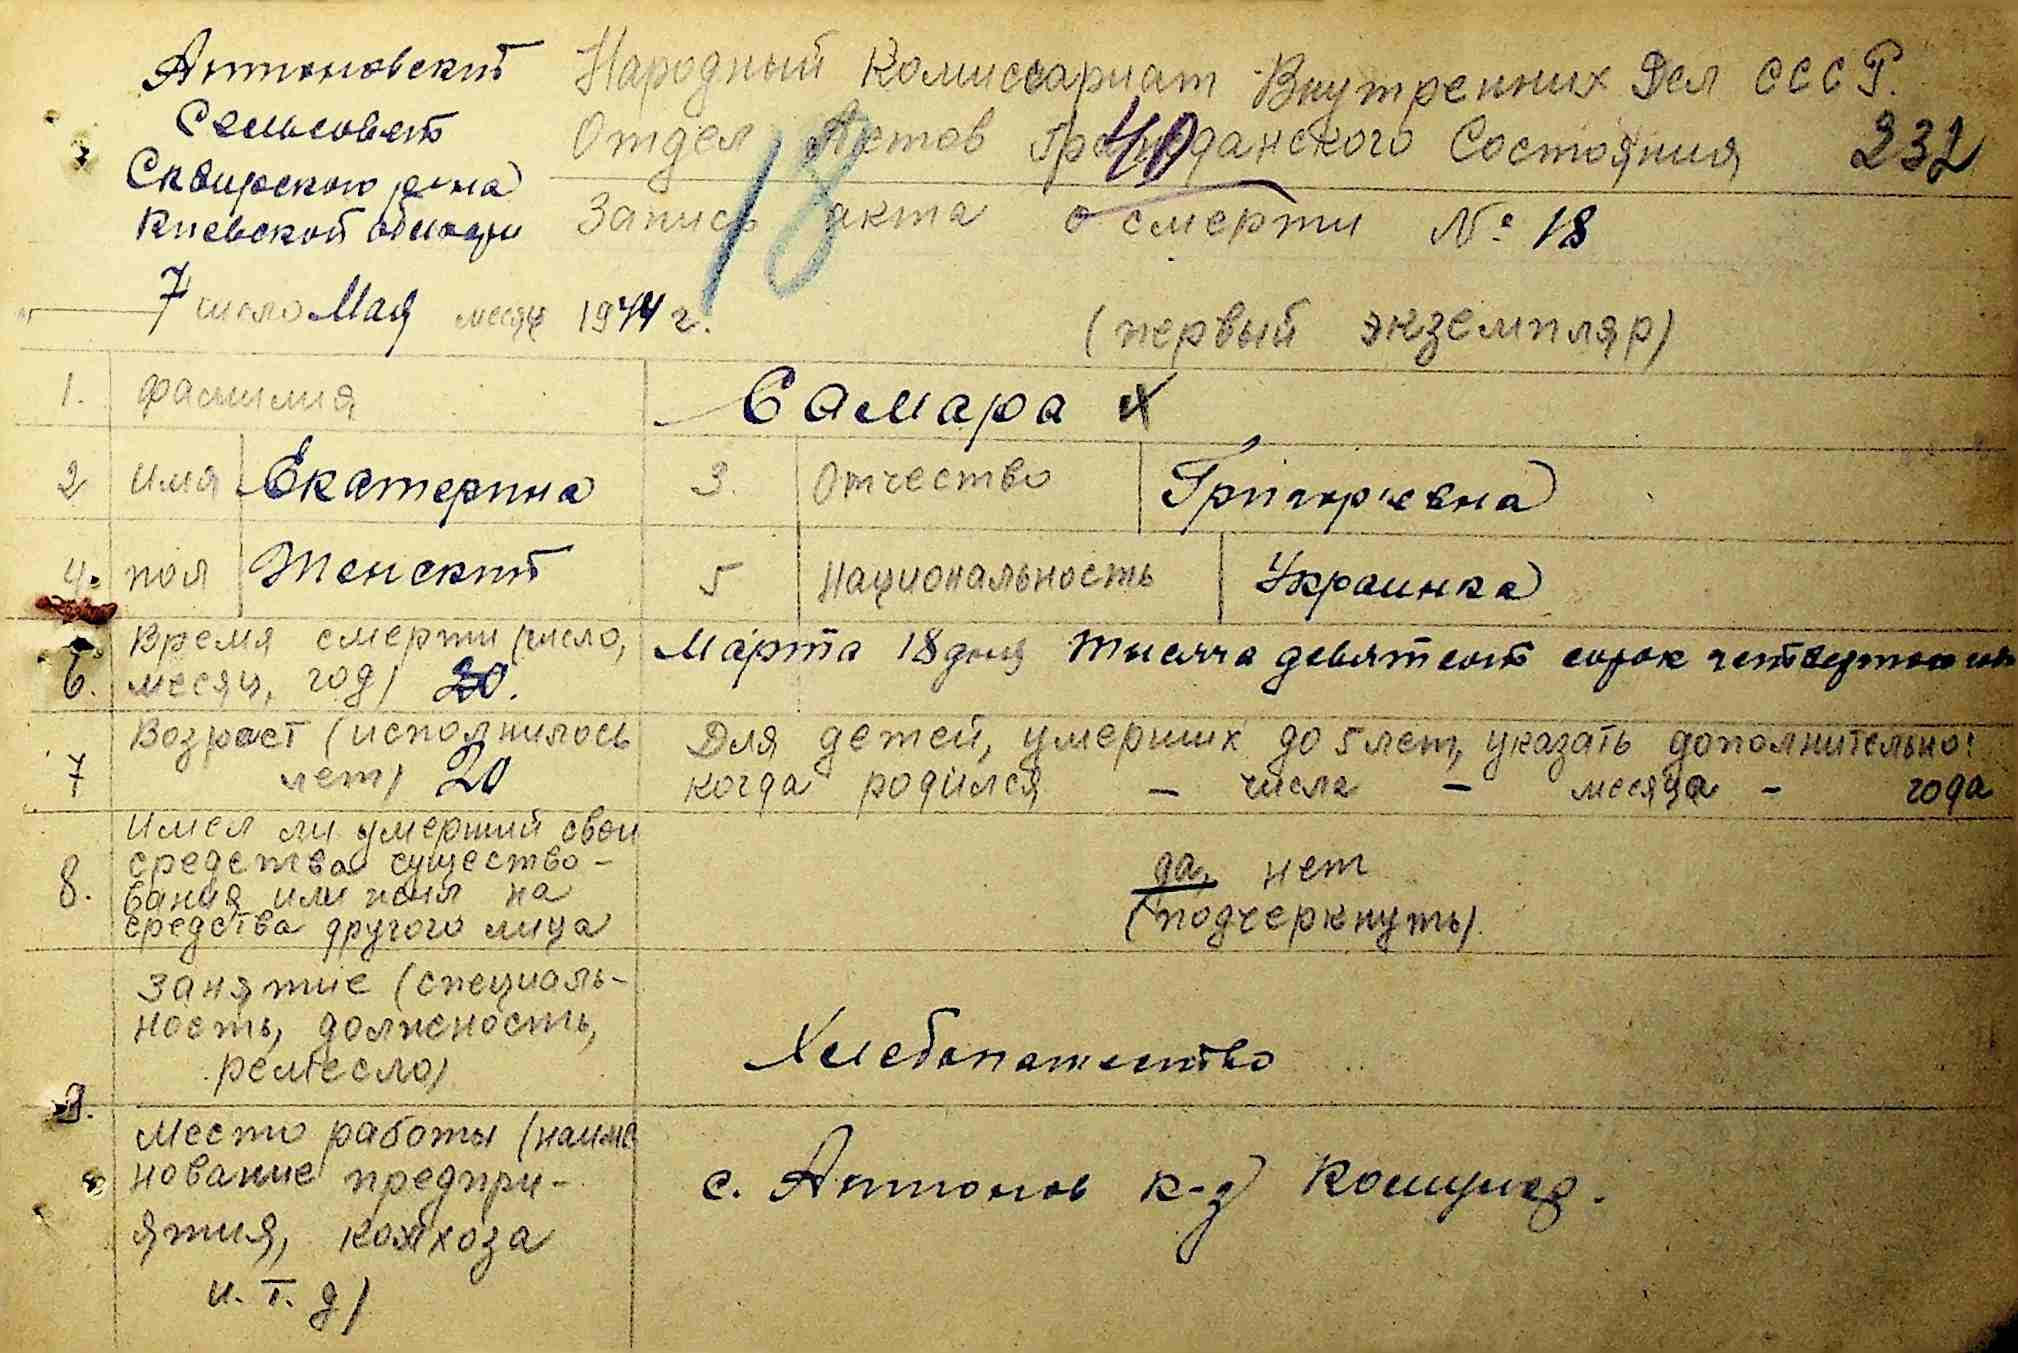 Антоновский
Сельсовет
Сквирского р-на
Киевской области
Народный Комиссариат Внутренних Дел СССР.
Отдел Актов Гражданского Состояния 232
40
18
Запись акта о смерти № 18
7 число Мая месяц 1944 г.
(первый экземпляр)
1. фамилия Самара х
2 имя Екатерина 3. Отчество Григорьевна
4. пол Женский 5 Национальность Украинка
6. Время смерти (число, месяц, год) 20. Марта 18 дня тысяча девятсот сорок четвертого
7 Возраст (исполнилось лет) 20 Для детей, умерших до 5 лет, указать дополнительно:
когда родился – числа – месяца – года
8. Имел ли умерший свои
средства существо-
вания или жил на
средства другого лица
да, нет
(подчеркнуть)
Занятие (специаль-
ность, должность,
ремесло)
Хлебопашество
9.
Место работы (наиме
нование предпри-
ятия, колхоза
и.т.д)
с. Антонов к-з